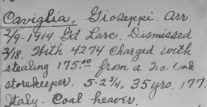 Caviglia, Gioseppi. Arr.
2/9-1914 Gd Larc. Dismissed
2/18. With 4274 Charged with
stealing 175.00 from a 2o.
storekeeper. 5-2¾, 35 yrs, 177.
Italy. Coal heaver.